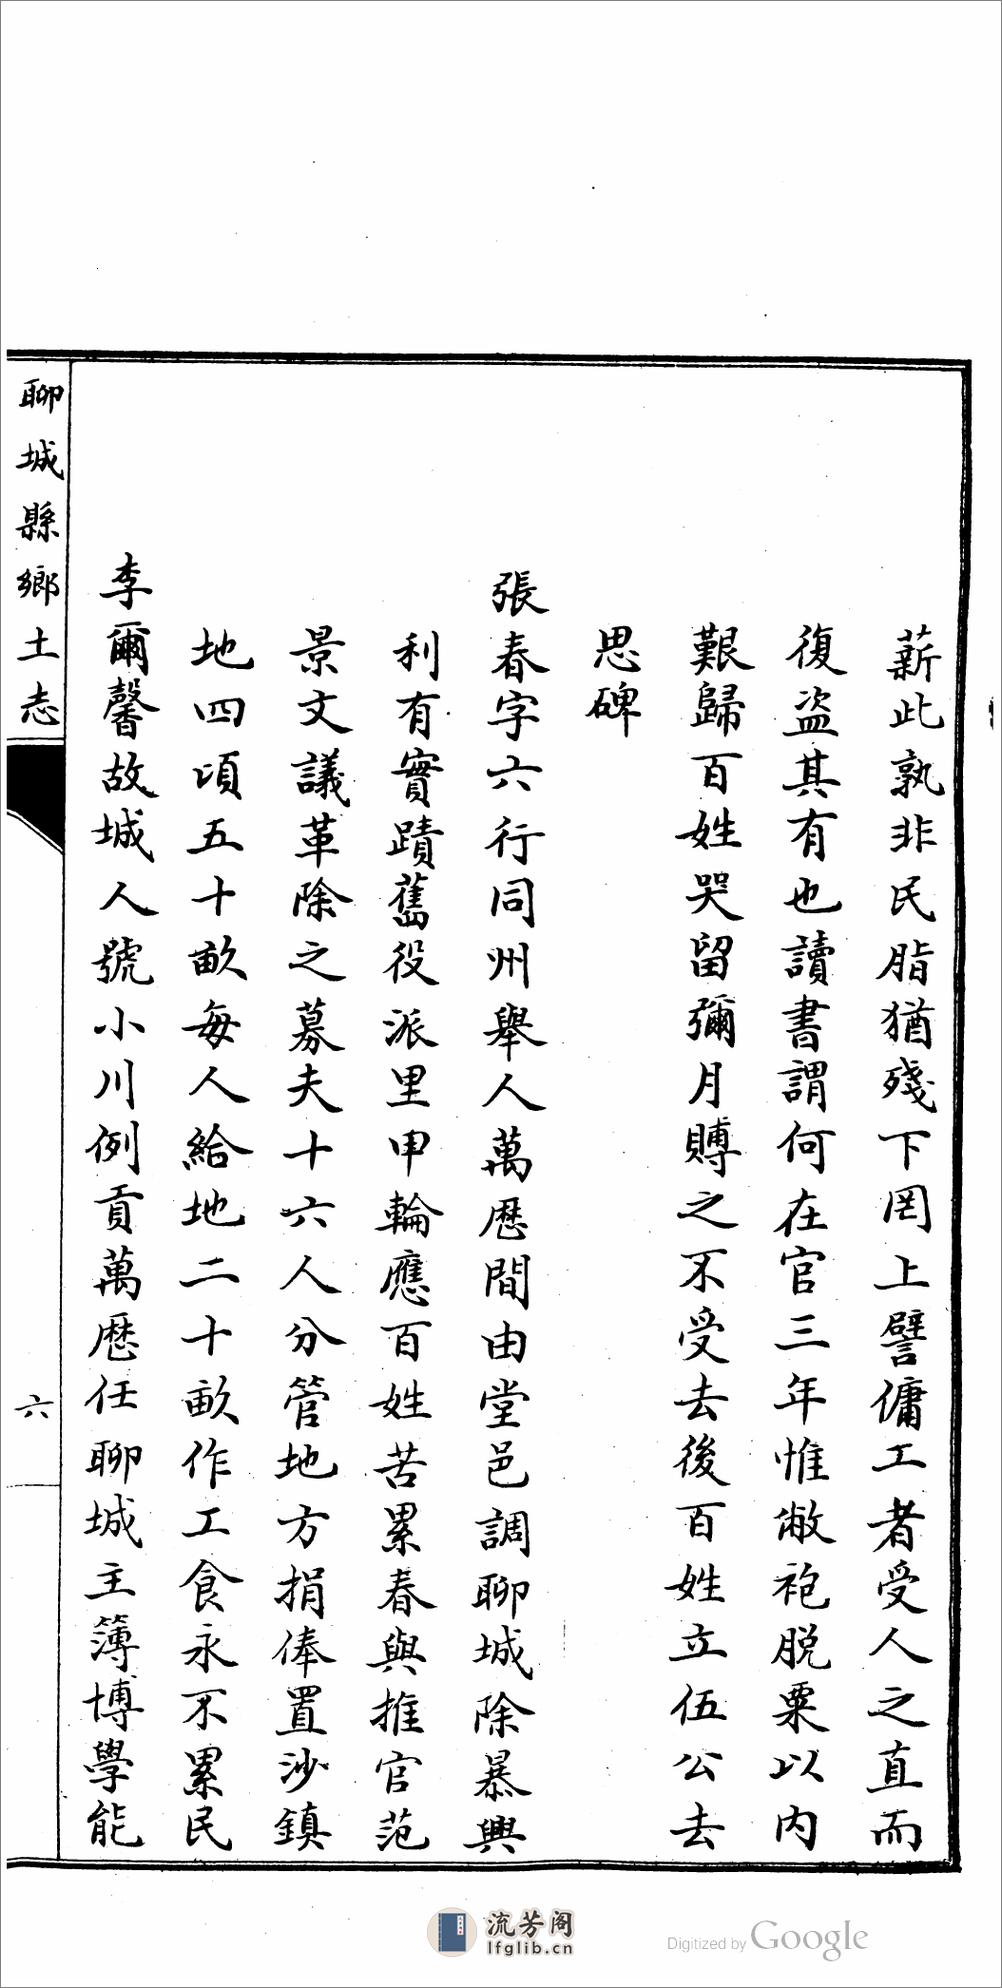 薪此孰非民脂猶殘下罔上譬傭工者受人之直而
復盜其有也讀書謂何在官三年惟敝袍脱粟以内
艱歸百姓哭留彌月賻之不受去後百姓立伍公去
思碑
張春字六行同州舉人萬歷間由堂邑調聊城除暴興
利有實蹟舊役派里甲輪應百姓苦累春與推官范
景文議革除之募夫十六人分管地方捐俸置沙鎮
地四頃五十畝每人給地二十畝作工食永不累民
李爾馨故城人號小川例貢萬歷任聊城主簿博學能
聊城縣鄉土志
六
流芳阁
lfglib.cn
Digitized by Google